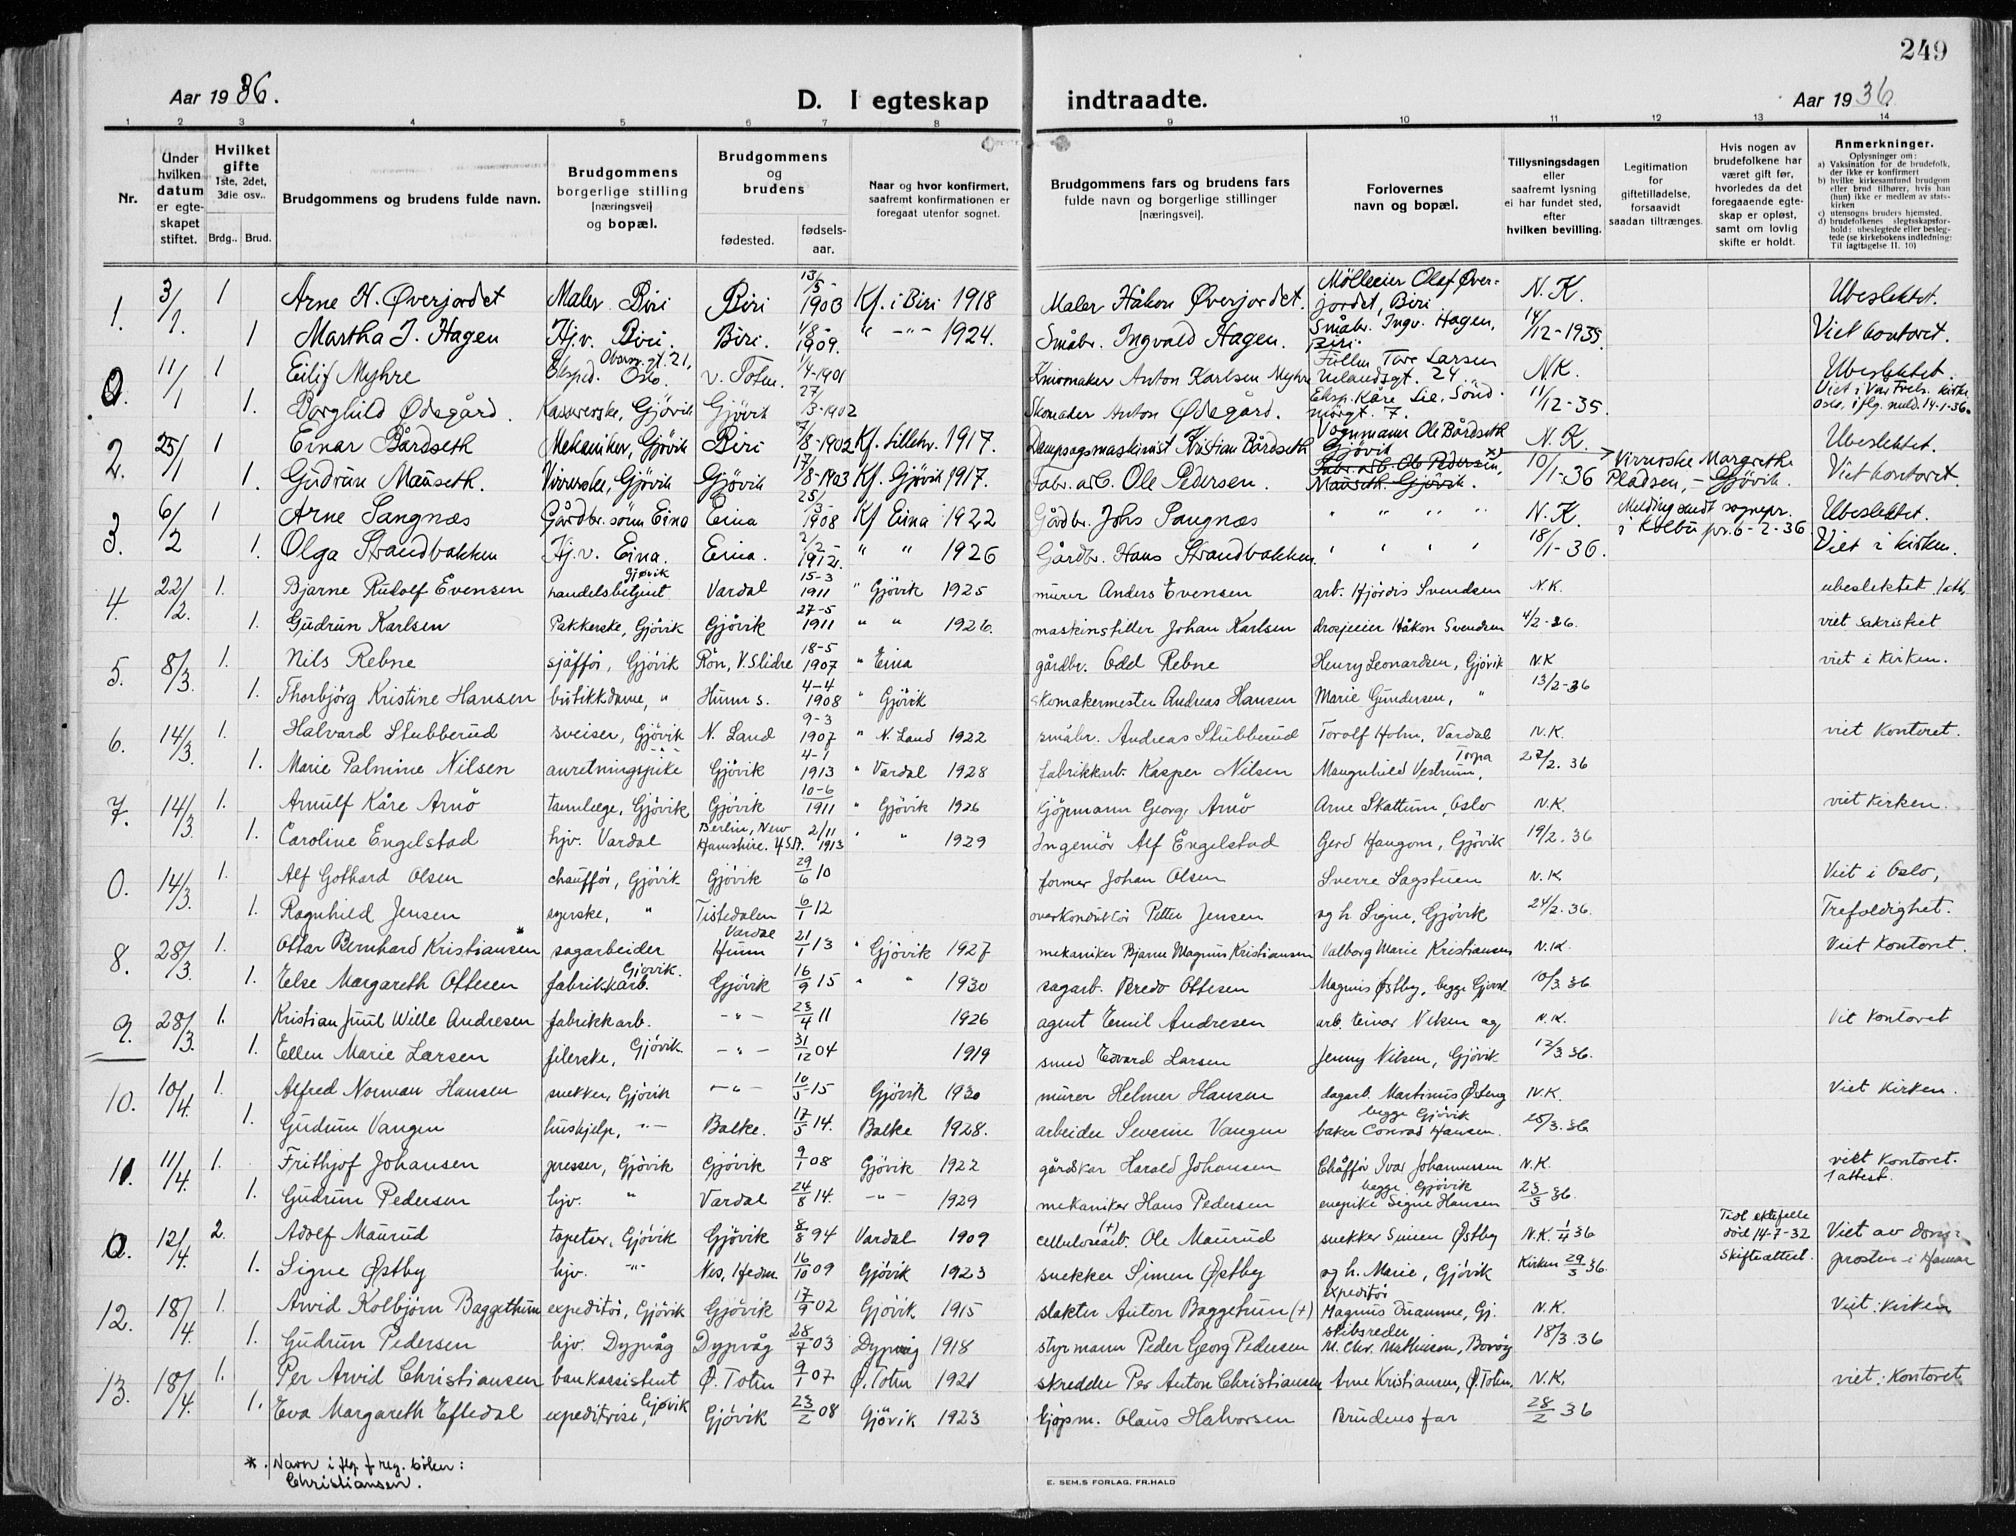 249
Aar 1936. D. I egteskap indtraadte. Aar 1936.
1 2 3 4 5 6 7 8 9 10 11 12 13 14
Nr.
Under hvilken datum er egteskapet stiftet.
Hvilket gifte 1ste, 2det, 3die osv..
Brdg.. Brud.
Brudgommens og brudens fulde navn.
Brudgommens borgerlige stilling [næringsvei] og bopæl.
Brudgommens og brudens
fødested. fødselsaar.
Naar og hvor konfirmert, saafremt konfirmationen er foregaat utenfor sognet.
Brudgommens fars og brudens fars fulde navn og borgerlige stillinger [næringsvei].
Forlovernes navn og bopæl.
Tillysningsdagen eller saafremt lysning ei har fundet sted, efter hvilken bevilling.
Legitimation for giftetilladelse, forsaavidt saadan tiltrænges.
Hvis nogen av brudefolkene har været gift før, hvorledes da det foregaaende egteskap er opløst, samt om lovlig skifte er holdt.
Anmerkninger.
Oplysninger om:
a) Vaksination for de brudefolk, der ikke er konfirmert
b) hvilke kirkesamfund brudgom eller brud tilhører, hvis han (hun) ikke er medlem av statskirken
c) utensogns bruders hjemsted.
d) brudefolkenes slegtsskapsforhold: ubeslegtede eller beslegtede (se kirkebokens indledning: Til iagttagelse II. 10)
1. 3/1. 1 Arne H. Øverjordet Maler Biri Biri 13/5-1903 Kf. i Biri 1918 Maler Håkon Øverjordet. Mølleeier Olaf Øverjordet, Biri N.K. Ubeslektet.
1 Martha J. Hagen Hj.v. Biri. Biri. 1/8-1909. " -"- 1924. Småbr. Ingvald Hagen. Småbr. Ingv. Hagen, Biri. 14/12-1935. Viet kontoret.
0. 11/1 1 Eilif Myhre Eksped. Oslo v. Toten. 1/4-1901 Anton Karlsen Myhre Tore Larsen Uelandsgt. 24 N.K. Ubeslektet.
1. Borghild Ødegård. Gjövik Gjövik 27/3-1902 Skomaker Anton Ødegård. Eksp. Kåre Lie, 7. 11/12-35. Viet i Vår Frels. kirke Oslo, iflg. meld. 14-1-36.
2. 25/1 1 Einar Bårdseth Mekaniker, Gjövik Biri 7/8-1902 Kf. Lilleh. 1917. Dampsagmaskinist Kristian Bårdseth Vognmann Ole Bårdseth Gjövik N.K. Ubeslektet.
1. Gudrun Mauseth. Virrerske, Gjövik Gjövik 17/8-1903 Kf. Gjövik 1917. Fabr. arb. Ole Pedersen. Fabr. arb. Ole Pedersen, Mauseth Gjövik. 10/1-36 Virrerske Margrethe Pladsen, - Gjövik. Viet kontoret.
3. 6/2 1 Arne Sangnæs Gårdbr. sønn Eina Eina 25/3-1908 Kf Eina 1922 Gårdbr. Johs Sangnæs " " " " N.K. Melding sendt sognepr. i Kolbu pr. 6-2-36 Ubeslektet.
1. Olga Strandbakken Hj.v. Eina. Eina. 2/2-1912. " " 1926 Gårdbr. Hans Strandbakken. " " " " 18/1-36. Viet i kirken.
4. 22/2. 1. Bjarne Rudolf Evensen handelsbetjent Gjøvik Vardal 15-3 1911 " Gjövik 1925 murer Anders Evensen arb. Hjördis Svendsen N.K. ubeslektet 1 att.
1. Gudrun Karlsen Pakkerske, Gjövik Gjövik 27-5 1911 " " 1926. maskinstiller Johan Karlsen drosjeeier Håkon Svendsen 4/2-36. viet sakristiet
5. 8/3. 1. Nils Rebne sjåffør, Gjövik Røn, V. Slidre 18-5 1907 " Eina gårdbr. Odel Rebne Henry Leonardsen, Gjövik N.K viet i kirken.
1. Thorbjörg Kristine Hansen butikkdame, " Hunn s. 4-4 1908 " Gjövik skomakermester Andreas Hansen Marie Gundersen, " 13/2-36
6. 14/3. 1. Halvard Stubberud sveiser, Gjövik N. Land 9-3 1907 " N. Land 1922 småbr. Andreas Stubberud Torolf Holm, Vardal N.K. viet Kontoret.
1. Marie Palmine Nilsen anretningspike Gjövik 4-1 1913 " Vardal 1928 fabrikkarb. Kasper Nilsen Mangnhild Vestrum, Torpa 22/2. 36
7. 14/3. 1. Arnulf Kåre Arnö tannlæge, Gjövik Gjövik 10-6 1911 " Gjövik 1926 kjøpmann Georg Arnö Arne Skattum, Oslo N.K. viet Kirken.
1. Caroline Engelstad hjv. Vardal Berlin, New Hamshire. U.S.A. 2/11 1913 " " 1929 Ingeniör Alf Engelstad Gerd Haugom, Gjövik 19/2. 36
0. 14/3. 1. Alf Gothard Olsen chauffør, Gjövik Gjövik 29/6 10 former Johan Olsen Sverre Sagstuen N.K Viet i Oslo,
1. Ragnhild Jensen syerske, " Tistedalen 6/1 12 overkonduktör Petter Jensen og h. Signe, Gjövik 24/2. 36. Trefoldighet.
8. 28/3. 1. Ottar Bernhard Kristiansen* sagarbeider Vardal Hunn 21/1 13 " Gjövik 1927 mekaniker Bjarne Magnus Kristiansen Valborg Marie Kristiansen N.K. Viet Kontoret.
1. Else Margareth Ottesen fabrikkarb. Gjövik. Gjövik 16/9 15 " " 1930 sagarb. Bredo Ottesen Magnus Østby, begge Gjövik 10/3. 36
9. 28/3. 1. Kristian Juul Wille Andresen fabrikkarb. -"- 23/4 11 1926 agent Emil Andresen arb. Einar Nilsen og N.K. Vie Kontoret
1. Ellen Marie Larsen filerske, Gjövik. -"- 31/12 04 1919 smed Edvard Larsen Jenny Nilsen, Gjövik 12/3. 36.
10. 10/4. 1. Alfred Norman Hansen snekker, Gjövik -"- 10/5 15 Gjövik 1930 murer Helmer Hansen dagarb. Martinus Østeng N.K. Viet Kirken.
1. Gudrun Vangen hushjelp, "- Balke. 17/5 14. Balke 1928. arbeider Severin Vangen begge Gjövik baker Conrad Hansen. 25/3. 36
11. 11/4. 1. Frithjof Johansen presser, Gjövik Gjövik 9/1 08 Gjövik 1922 gårdskar Harald Johansen Chåfför Ivar Johannessen N.K. viet Kontoret. 1 attest.
1. Gudrun Pedersen hjv. " Vardal 24/8 14. -"- 1929 mekaniker Hans Pedersen begge Gjövik Signe Hansen 23/3 36.
0. 12/4. 2. Adolf Maurud tapetser, Gjövik Gjövik 8/8 94 Vardal 1909 cellulosearb. (+) Ole Maurud snekker Simen Østby N.K. 1/4 36 Tidl ektefelle död 14-7-32 Skifteattest. Viet av domprosten i Hamar
1. Signe Østby hjv. "- Nes, Hedm. 16/10 09 Gjövik 1923 snekker Simen Østby og h. Marie, Gjövik Kirken 29/3 36.
12. 18/4. 1. Arvid Kolbjörn Baggethun expeditör, Gjövik Gjövik 17/9 02 Gjövik 1915 slakter Anton Baggethun (+) expeditör Magnus Duamme, Gj. N.K. Viet: Kirken
1. Gudrun Pedersen hjv. Dypvåg Dypvåg 28/7 03 Dypvåg 1918 styrmann Peder Georg Pedersen skibsreder M. Chr. Mathiesen, Boröy 18/3. 36
13. 18/4. 1. Per Arvid Christiansen bankassistent Ø. Toten 9/1 07. Ø. Toten 1921 skredder Per Anton Christiansen Arne Kristiansen, Ø. Toten. N.K. viet: Kontoret
1. Eva Margareth Eftedal expeditrise, Gjövik Gjövik 23/2 08 Gjövik 1923 kjøpm. Olaus Halvorsen Brudens far 28/2 36
*. Navn i flg. f reg. bôken: Christiansen.
E. SEM.S FORLAG, FR.HALD